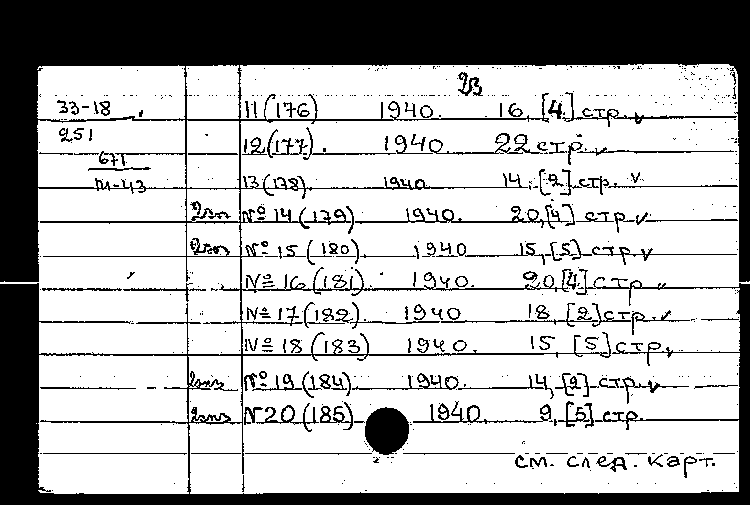 23
33-18 11(176) 1940. 16, [4] стр. v
251 12(177). 1940. 22 стр. v
671 13(178). 1940. 14, [2] стр. v
М-43
2экз №14(179) 1940. 20,[4] стр. v
2экз №15(180) 1940 15, [5] стр. v
№16(181). 1940. 20,[4] стр v
№17(182). 1940 18, [2] стр. v
№18(183) 1940. 15, [5] стр. v
2экз №19(184). 1940. 14, [2] стр. v
2экз N20(185) 1940. 9, [5] стр.
см. след. карт.